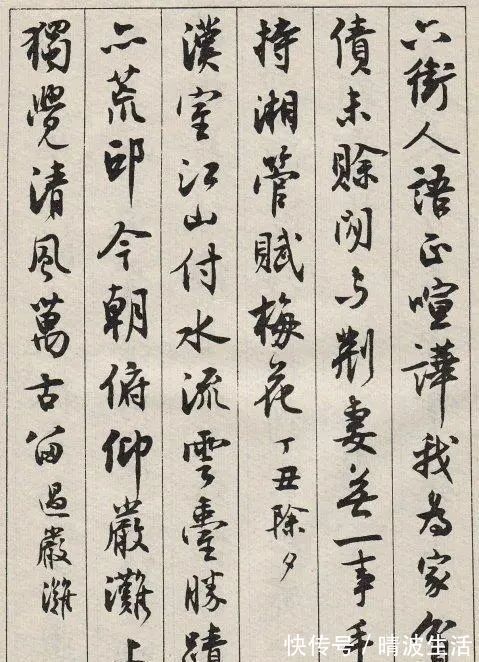 六街人語正喧譁我為家貧
債未賒閒与荆妻無一事手
持湘管賦梅花 丁丑除夕
漢室江山付水流雲臺勝蹟
亦荒邱今朝俯仰嚴灘上
獨覺清風萬古留 過嚴灘
快传号 / 晴波生活